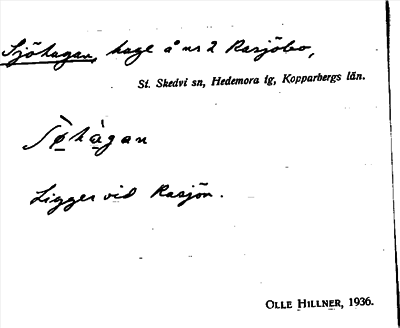 Sjöhagen, hage å nr 2 Rasjöbo,
St. Skedvi sn, Hedemora tg, Kopparbergs län.
Sø̀hàgan
Ligger vid Rasjön.
OLLE HILLNER, 1936.